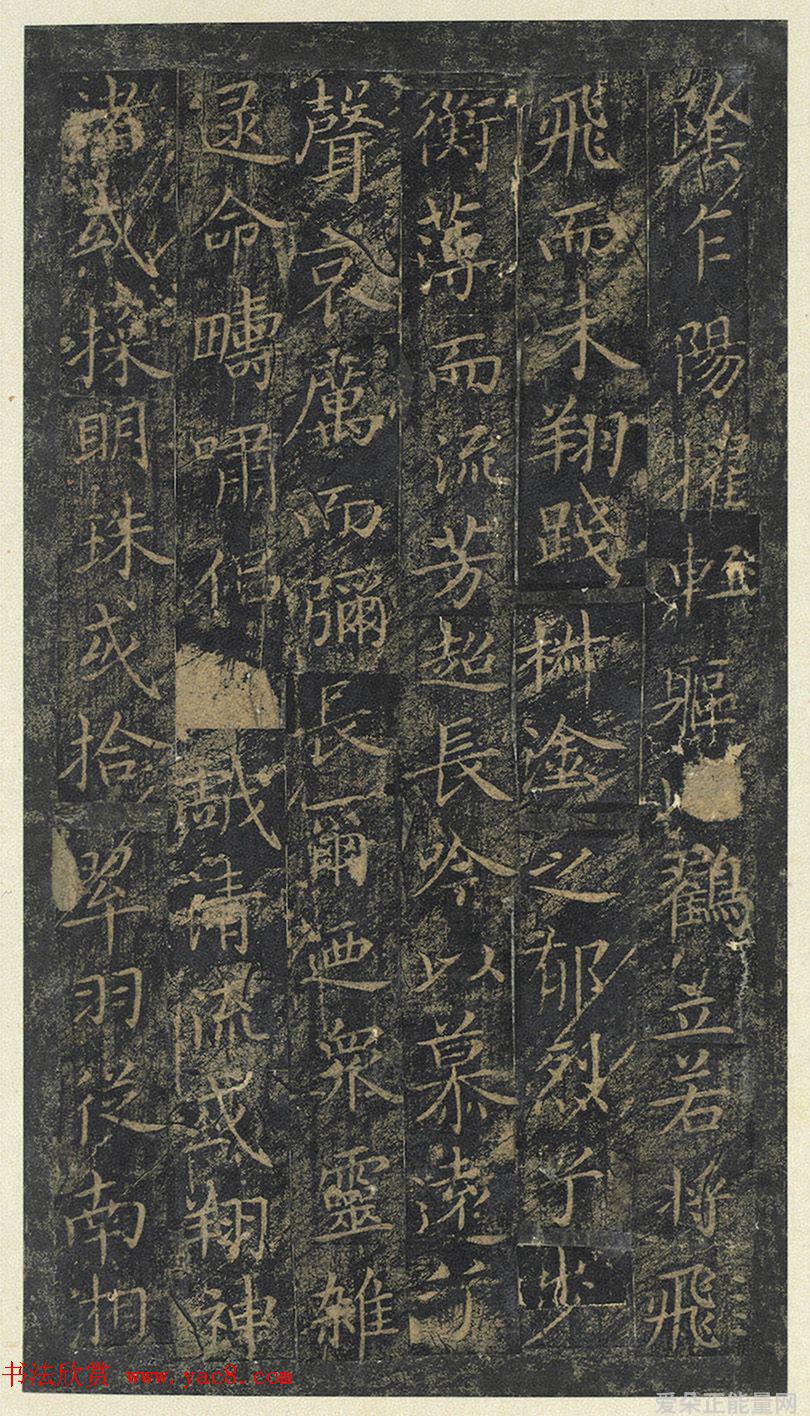 隂乍陽擢輕軀以鶴立若將飛
飛而未翔踐椒塗之郁烈兮步
衡薄而流芳超長吟以慕遠兮
聲哀厲而彌長爾迺衆靈雜
遝命疇嘯侶戲清流或翔神
渚或採眀珠或拾翠羽從南湘
书法欣赏 www.yac8.com
爱朵正能量网